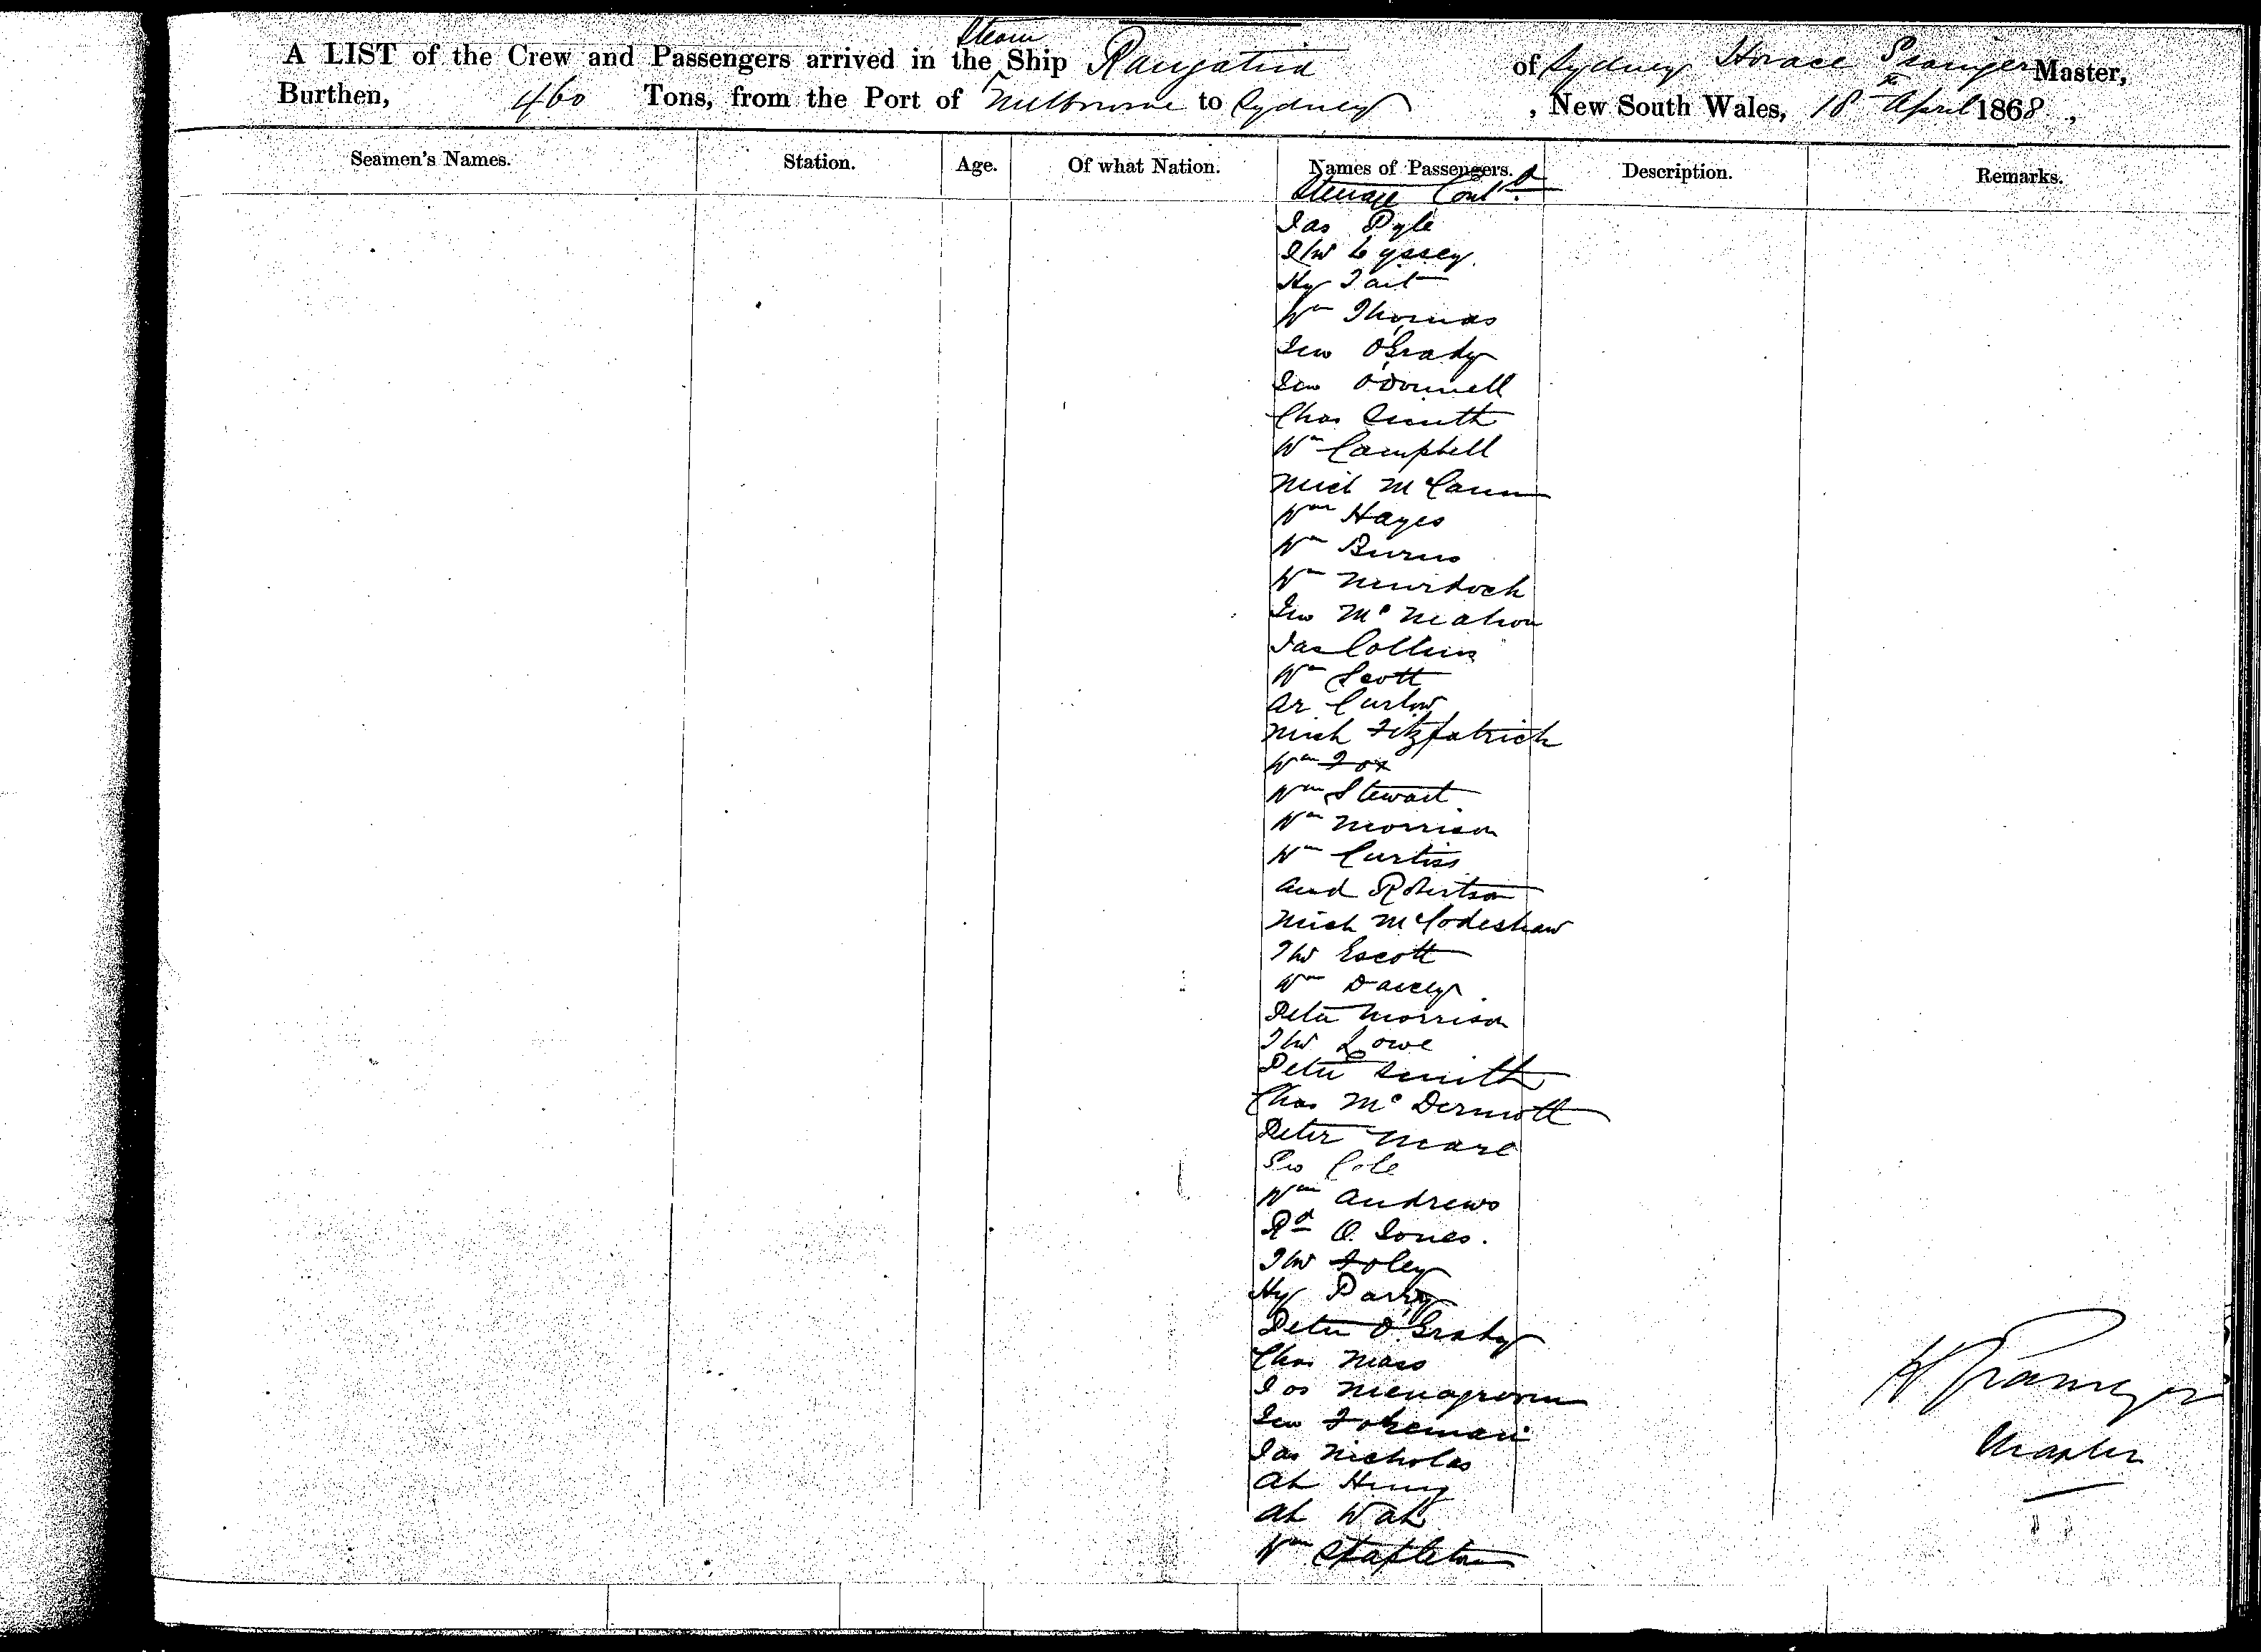 A LIST of the Crew and Passengers arrived in the Steam Ship Rangatira of Sydney Horace Master,
Burthen, 460 Tons, from the Port of Melbourne to Sydney, New South Wales, 18th April 1868,
Seamen's Names. Station. Age. Of what Nation. Names of Passengers. Description. Remarks.
Steerage Contd.
Jas Pyle
Hy Tait
Wm Thomas
Jno O'Grady
Jno O'Donnell
Chas Smith
Wm Campbell
Mich McCann
Wm Hayes
Wm Burns
Wm Murdoch
Jno Mc Mahon
Jas Collins
Wm Scott
Ar Curlow
Mich Fitzpatrick
Wm Fox
Wm Stewart
Wm Morrison
Wm Curtiss
And Robertson
Mich
Tho Escott
Wm Darcy
Peter Morrison
Tho Lowe
Peter Smith
Chas Mc Dermott
Peter Mare
Geo Cole
Wm Andrews
Rd O. Jones.
Tho Foley
Hy Parry
Peter O'Grady
Chas
Jos
Jno
Jas Nicholas
Ah Hung
Ah Wah
Wm Stapleton
Master